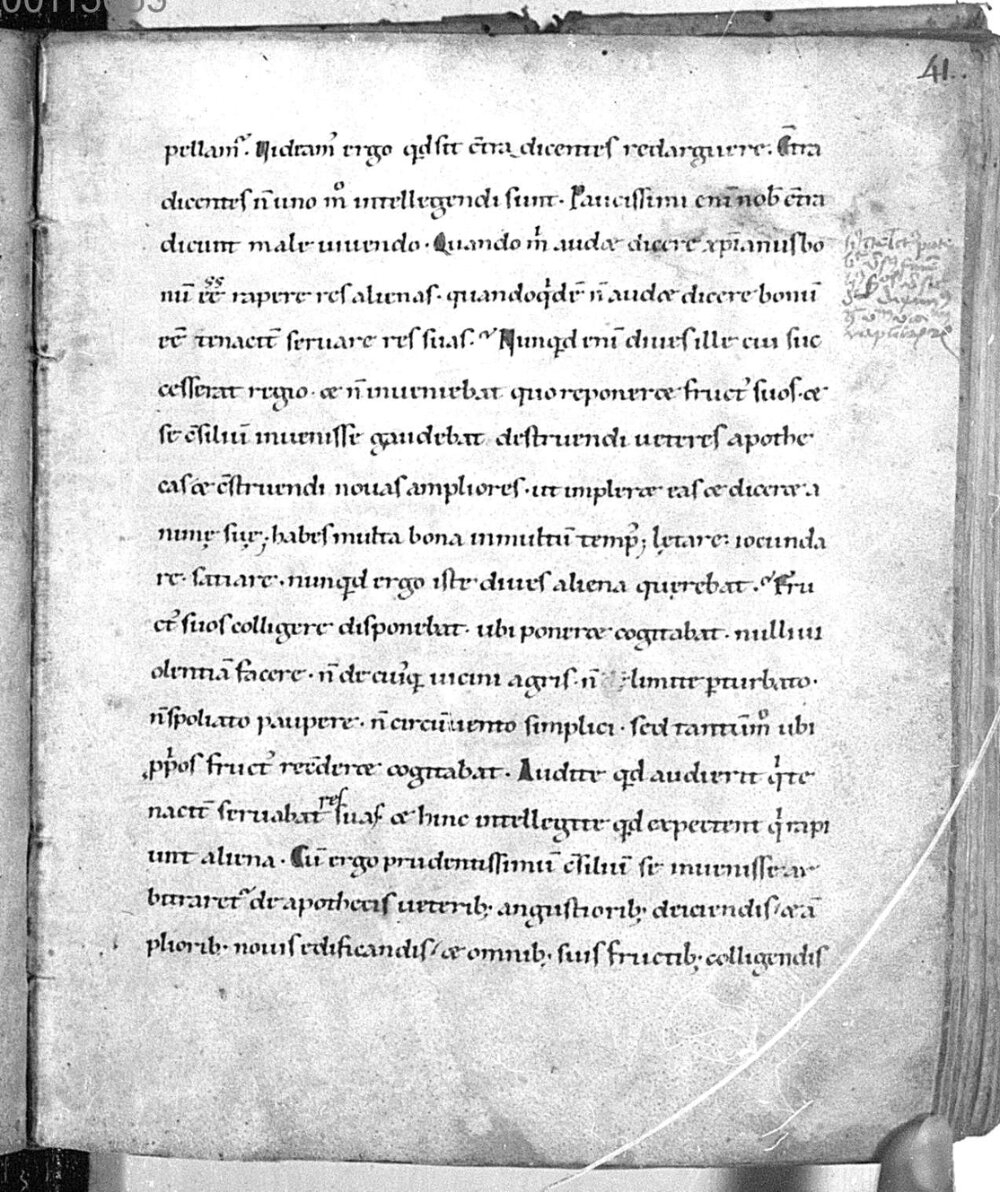 41..
pellam᷒. Videam᷒ ergo qđ sit c̄tra dicentes redarguere. C̄tra
dicentes n̄ uno m̊ intellegendi sunt. Paucissimi eni᷒ nob̄ c̄tra
dicunt male uiuendo. Quando m̄ audet dicere xp̄ianus bo
nū ēē rapere res alienas. quandoqͥdē n̄ audet dicere bonū
ēē tenacit̄ seruare res suas. Nunqđ enī diues ille cui suc
cesserat regio. et n̄ inueniebat quo reponeret fruct᷒ suos. et
se c̄siliū inuenisse gaudebat destruendi ueteres apothe
cas et c̄struendi nouas ampliores. ut impleret eas et diceret a
nimę suę; habes multa bona in multū temp᷒; lętare: iocunda
re. satiare. nunqđ ergo iste diues aliena quęrebat. Fru
ct᷒ suos colligere disponebat. ubi poneret cogitabat. nulli ui
olentiā facere. n̄ de cui᷒qꝫ uicini agris. n̄ limite ꝑturbato.
n̄ spoliato paupere. n̄ circūuento simplici. sed tantūm̊ ubi
ꝓpͥos fruct᷒ rec̄deret cogitabat. Audite qđ audierit qͥ te
nacit̄ seruabat res suas et hinc intellegite qđ expectent qͥ rapi
unt aliena. Cū ergo prudentissimū c̄siliū se inuenisse ar
bitraret᷒ de apothecis ueterib; angustiorib; deiciendis/ et ā
pliorib; nouis edificandis/ et omnib; suis fructib; colligendis